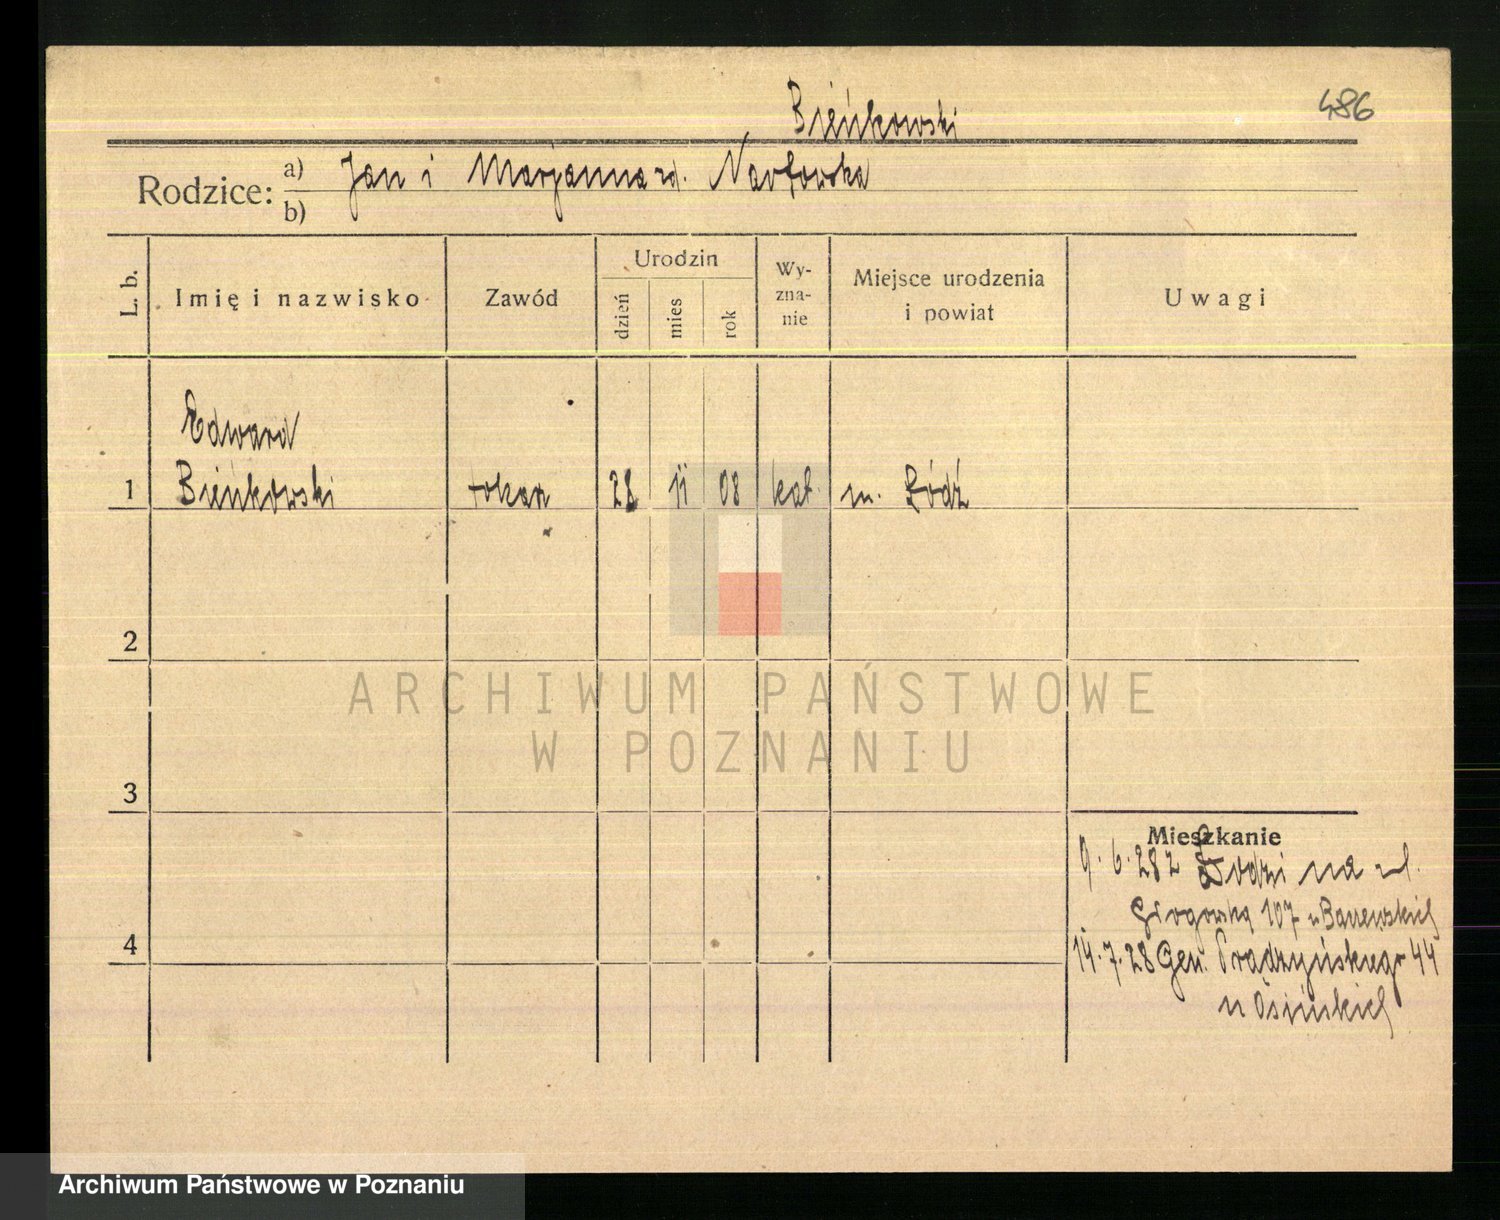 486
Bieńkowski
Rodzice: a) Jan i Marjanna zd. Nawrowska
b)
L. b. Imię i nazwisko Zawód Urodzin dzień mies rok Wy-zna-nie Miejsce urodzenia i powiat Uwagi
Edward
1 Bieńkowski tokarz 28 11 08 kat. m. Łódź
2
3
Mieszkanie
9.6.28 z Łodzi na ul.
107 u
4
14.7.28 Gen. Prądzyńskiego 44
u Osińskich
ARCHIWUM PAŃSTWOWE
W POZNANIU
Archiwum Państwowe w Poznaniu